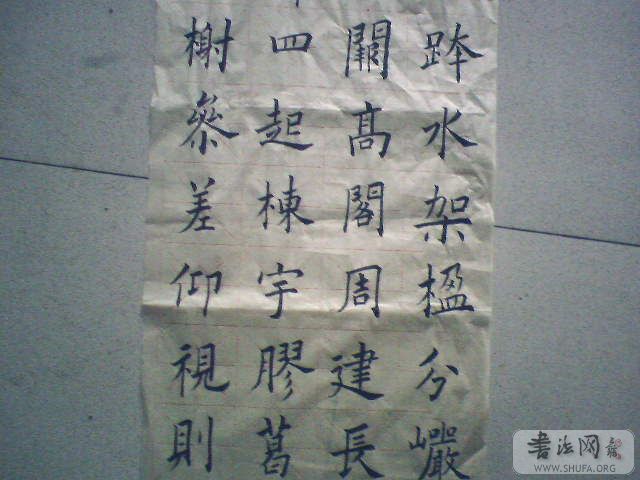 跨水架楹分巖
闕髙閣周建長
四起棟宇膠葛
榭參差仰視則
书法网
WWW.SHUFA.ORG